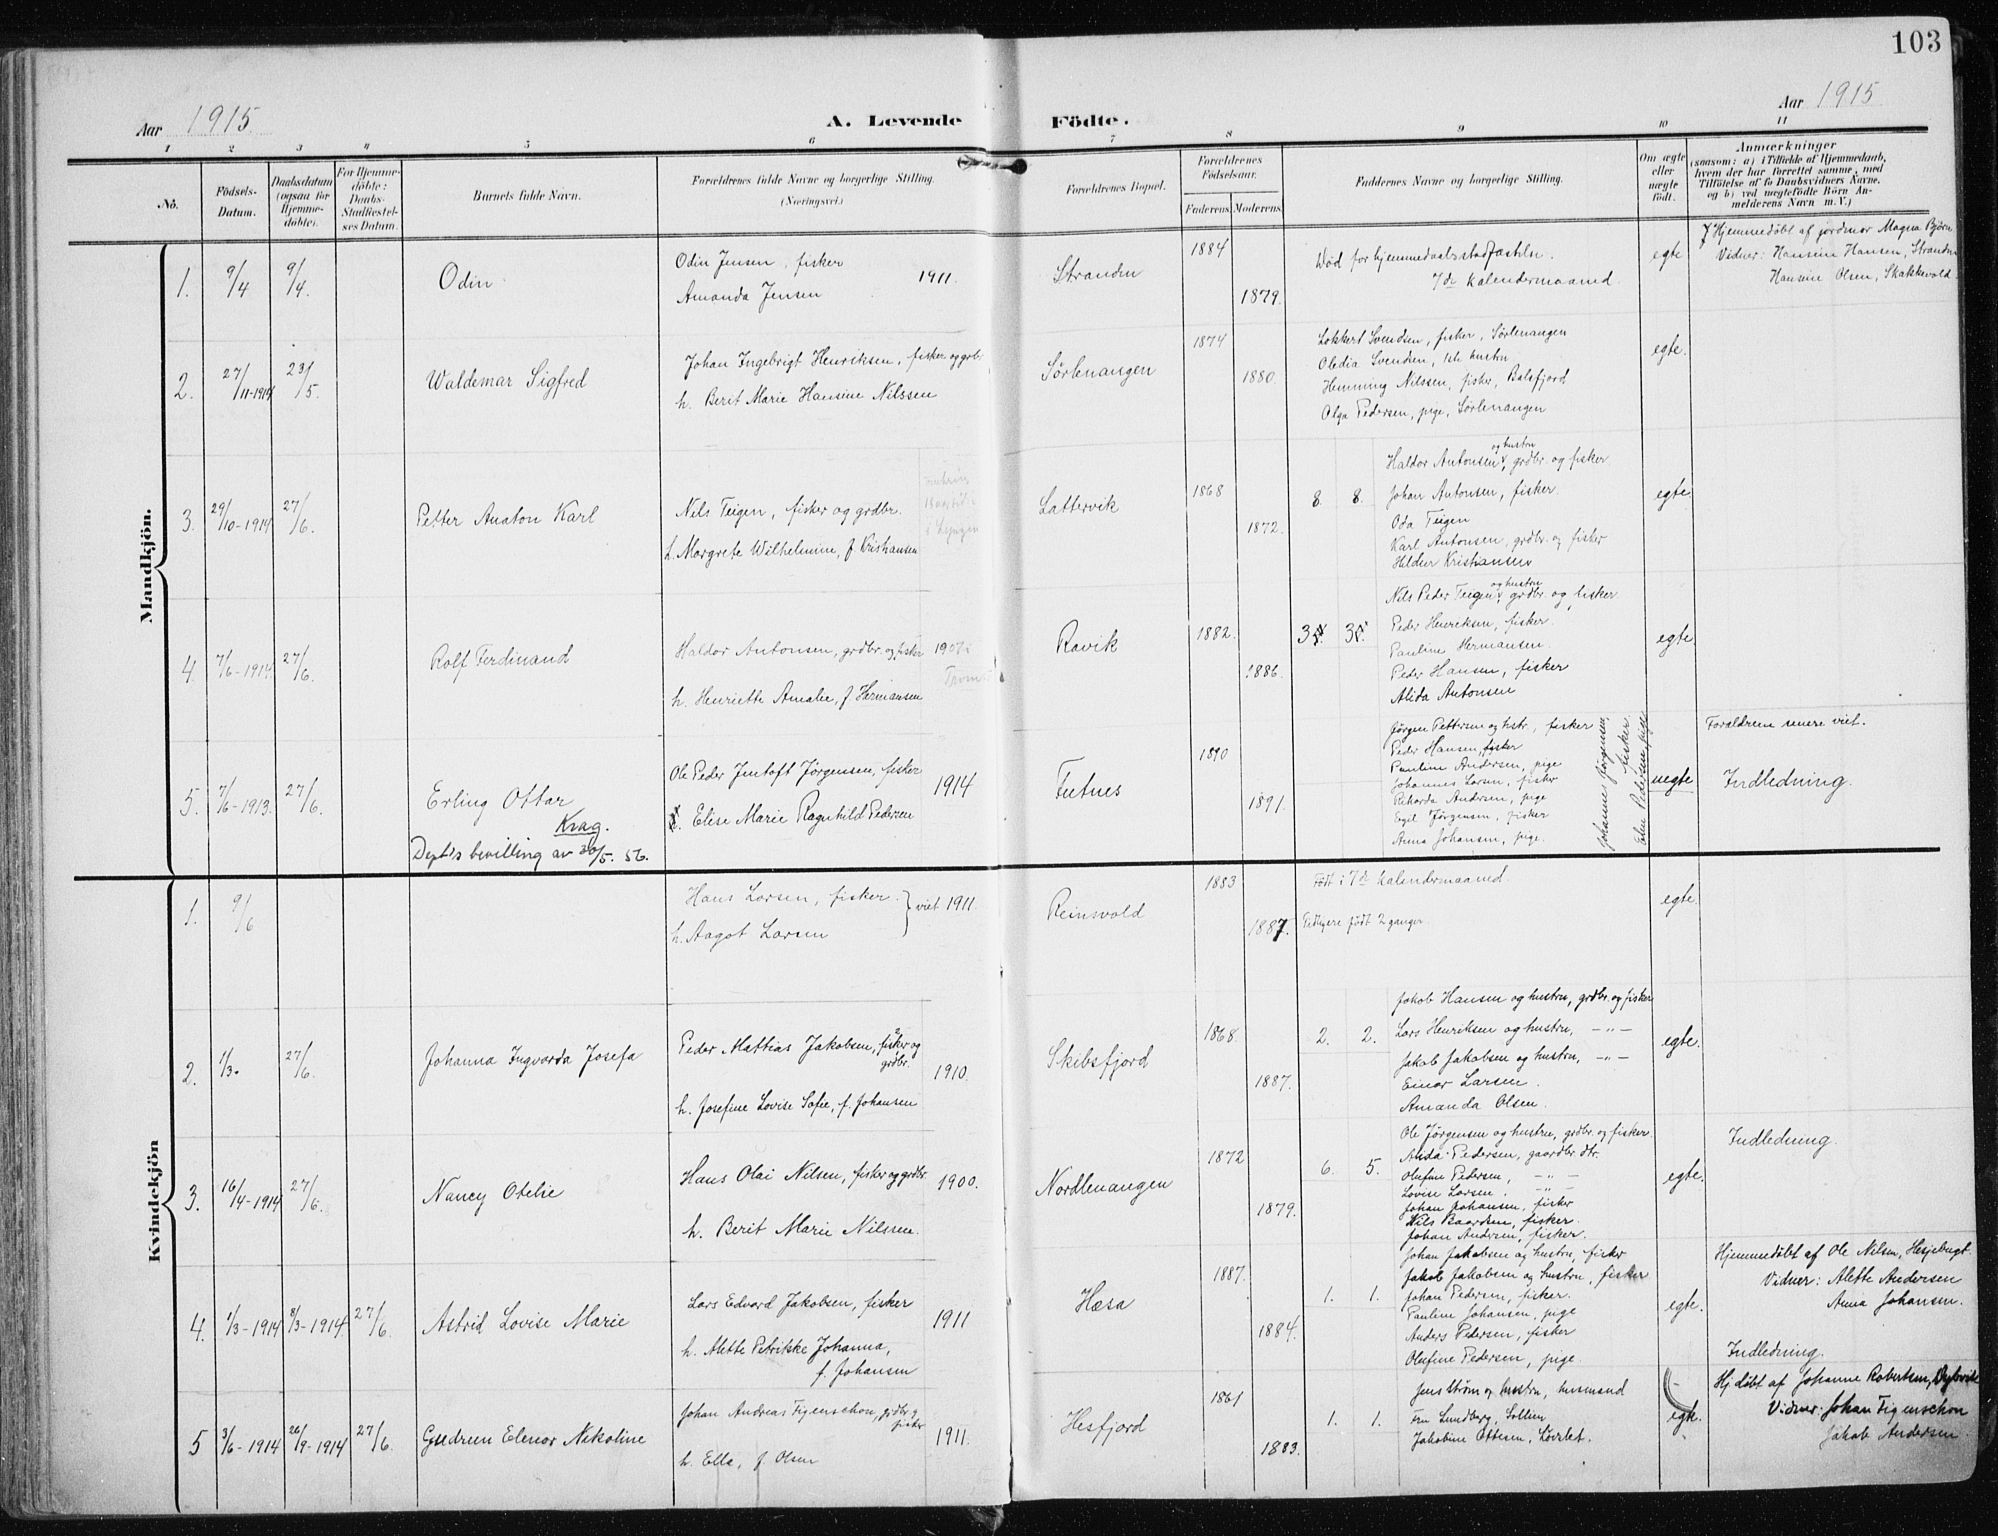 103
Aar 1915
A. Levende Födte.
Aar 1915
1 2 3 4 5 6 7 8 9 10 11
No.
Födsels-
Datum.
Daabsdatum
(ogsaa for
Hjemme-
döbte).
For Hjemme-
döbte:
Daabs-
Stadfæstel-
ses Datum.
Barnets fulde Navn.
Forældrenes fulde Navne og borgerlige Stilling.
(Næringsvei.)
Forældrenes Bopæl.
Forældrenes
Födselsaar.
Faderens. Moderens.
Faddernes Navne og borgerlige Stilling.
Om ægte
eller
uægte
födt.
Anmærkninger
(saasom: a) i Tilfælde af Hjemmedaab,
hvem der har forrettet samme, med
Tilföielse af to Daabsvidners Navne.
og b) ved uægtefödte Börn An-
melderens Navn m. V.)
Mandkjön.
1. 9/4 9/4.
Odin
Odin Jensen, fisker
Amanda Jensen
1911.
1884
1879.
Død før hjemmedaabsstadfæstelse.
7de kalendermaaned.
egte
Hjemmedøbt af jordmor Magna Bjørn
Vidner: Hansine Hansen,
Hansine Olsen, Skakkevold
2. 27/11-1914 23/5.
Waldemar Sigfred
Johan Ingebrigt Henriksen, fisker og grdbr.
h. Berit Marie Hansine Nilssen
Sørlenangen
1874
1880.
Lokkert Svendsen, fisker, Sørlenangen
Oledia Svendsen, hustru
Hemming Nilssen, fisker, Balsfjord
Olga Pedersen, pige, Sørlenangen
egte.
3. 29/10-1914 27/6.
Petter Anaton Karl
Nils Teigen, fisker og grdbr.
h. Margrete Wilhelmine, f. Kristiansen
Lattervik
1868
1872.
8. 8.
Haldor Antonsen og hustru, grdbr. og fisker
Johan Antonsen, fisker.
Oda Teigen
Karl Antonsen, grdbr. og fisker
Hildur Kristiansen
egte.
4. 7/6-1914. 27/6.
Rolf Ferdinand
Haldor Antonsen, grdbr. og fisker
h. Henriette Amalie, f. Hermansen
Ravik
1882.
1886.
Nils Peder Teigen og hustru, grdbr. og fisker
Peder Henriksen, fisker.
Pauline Hermansen.
Peder Hansen, fisker
Alida Antonsen
egte
5. 7/6-1913. 27/6.
Erling Ottar
Krag.
Dept's bevilling av 30/5. 56.
Ole Peder Jentoft Jørgensen, fisker
Elise Marie Ragnhild Pedersen
1914
1890
1891.
Jørgen Pettersen og hstr., fisker
Peder Hansen, fisker
Pauline Andersen, pige
Johannes Larsen, fisker
Rikarda Andersen, pige
Egil Jørgensen, fisker
Anna Johansen, pige.
Johanne Jørgensen,
fisker
Elen Pedersen, pige
uegte
Forældrene senere viet.
Indledning.
Kvindekjön
1. 9/6
Hans Larsen, fisker.
h. Aagot Larsen
viet 1911.
Reinsvold
1883
1887.
Født i 7de kalendermaaned.
Tidligere født 2 ganger
egte.
2. 1/3. 27/6.
Johanna Ingvarda Josefa
Peder Mathias Jakobsen, fisker og
grdbr.
h. Josefine Lovise Sofie, f. Johansen
1910.
Skibsfjord
1868.
1887.
2. 2.
Jakob Hansen og hustru, grdbr. og fisker
Lars Henriksen og hustru, -"-
Jakob Jakobsen og hustru, -"-
Einar Larsen.
Amanda Olsen.
egte.
3. 16/4-1914 27/6.
Nancy Otelie
Hans Olai Nilsen, fisker og grdbr.
h. Berit Marie Nilssen.
1900.
Nordlenangen
1872
1879.
6. 5.
Ole Jørgensen og hustru, grdbr. og fisker.
Anda Pedersen, gaardbr. dtr.
Olufine Pedersen, -"-
Lovise Larsen. -"-
Johan Johansen, fisker
Nils Baardsen, fisker.
Johan Andersen, fisker.
egte.
Indledning.
4. 1/3-1914 8/3-1914. 27/6.
Astrid Lovise Marie
Lars Edvard Jakobsen, fisker
h. Alette Petrikke Johanna,
f. Johansen
1911
Hæsa
1887.
1884.
1. 1.
Johan Jakobsen og hustru, fisker
Jakob Jakobsen og hustru, fisker
Johan Pedersen, fisker.
Pauline Johansen, pige
Anders Pedersen, fisker
Olufine Pedersen, pige.
egte.
Hjemmedøbt af Ole Nilsen, Hesjebugt.
Vidner: Alette Andersen
Anna Johansen.
Indledning.
5 3/6-1914 26/9-1914 27/6.
Gudrun Elenor Nikoline
Johan Andreas Figenschon, grdbr. og
fisker
h. Ella, f. Olsen
1911.
Hesfjord
1861
1883.
1. 1.
Jens Strøm og hustru, husmand
Fru Lundberg,
Jakobine Ottesen,
egte.
Hjdøbt af Johanne Robertsen, Dybvik
Vidner: Johan Figenschon
Jakob Andersen.